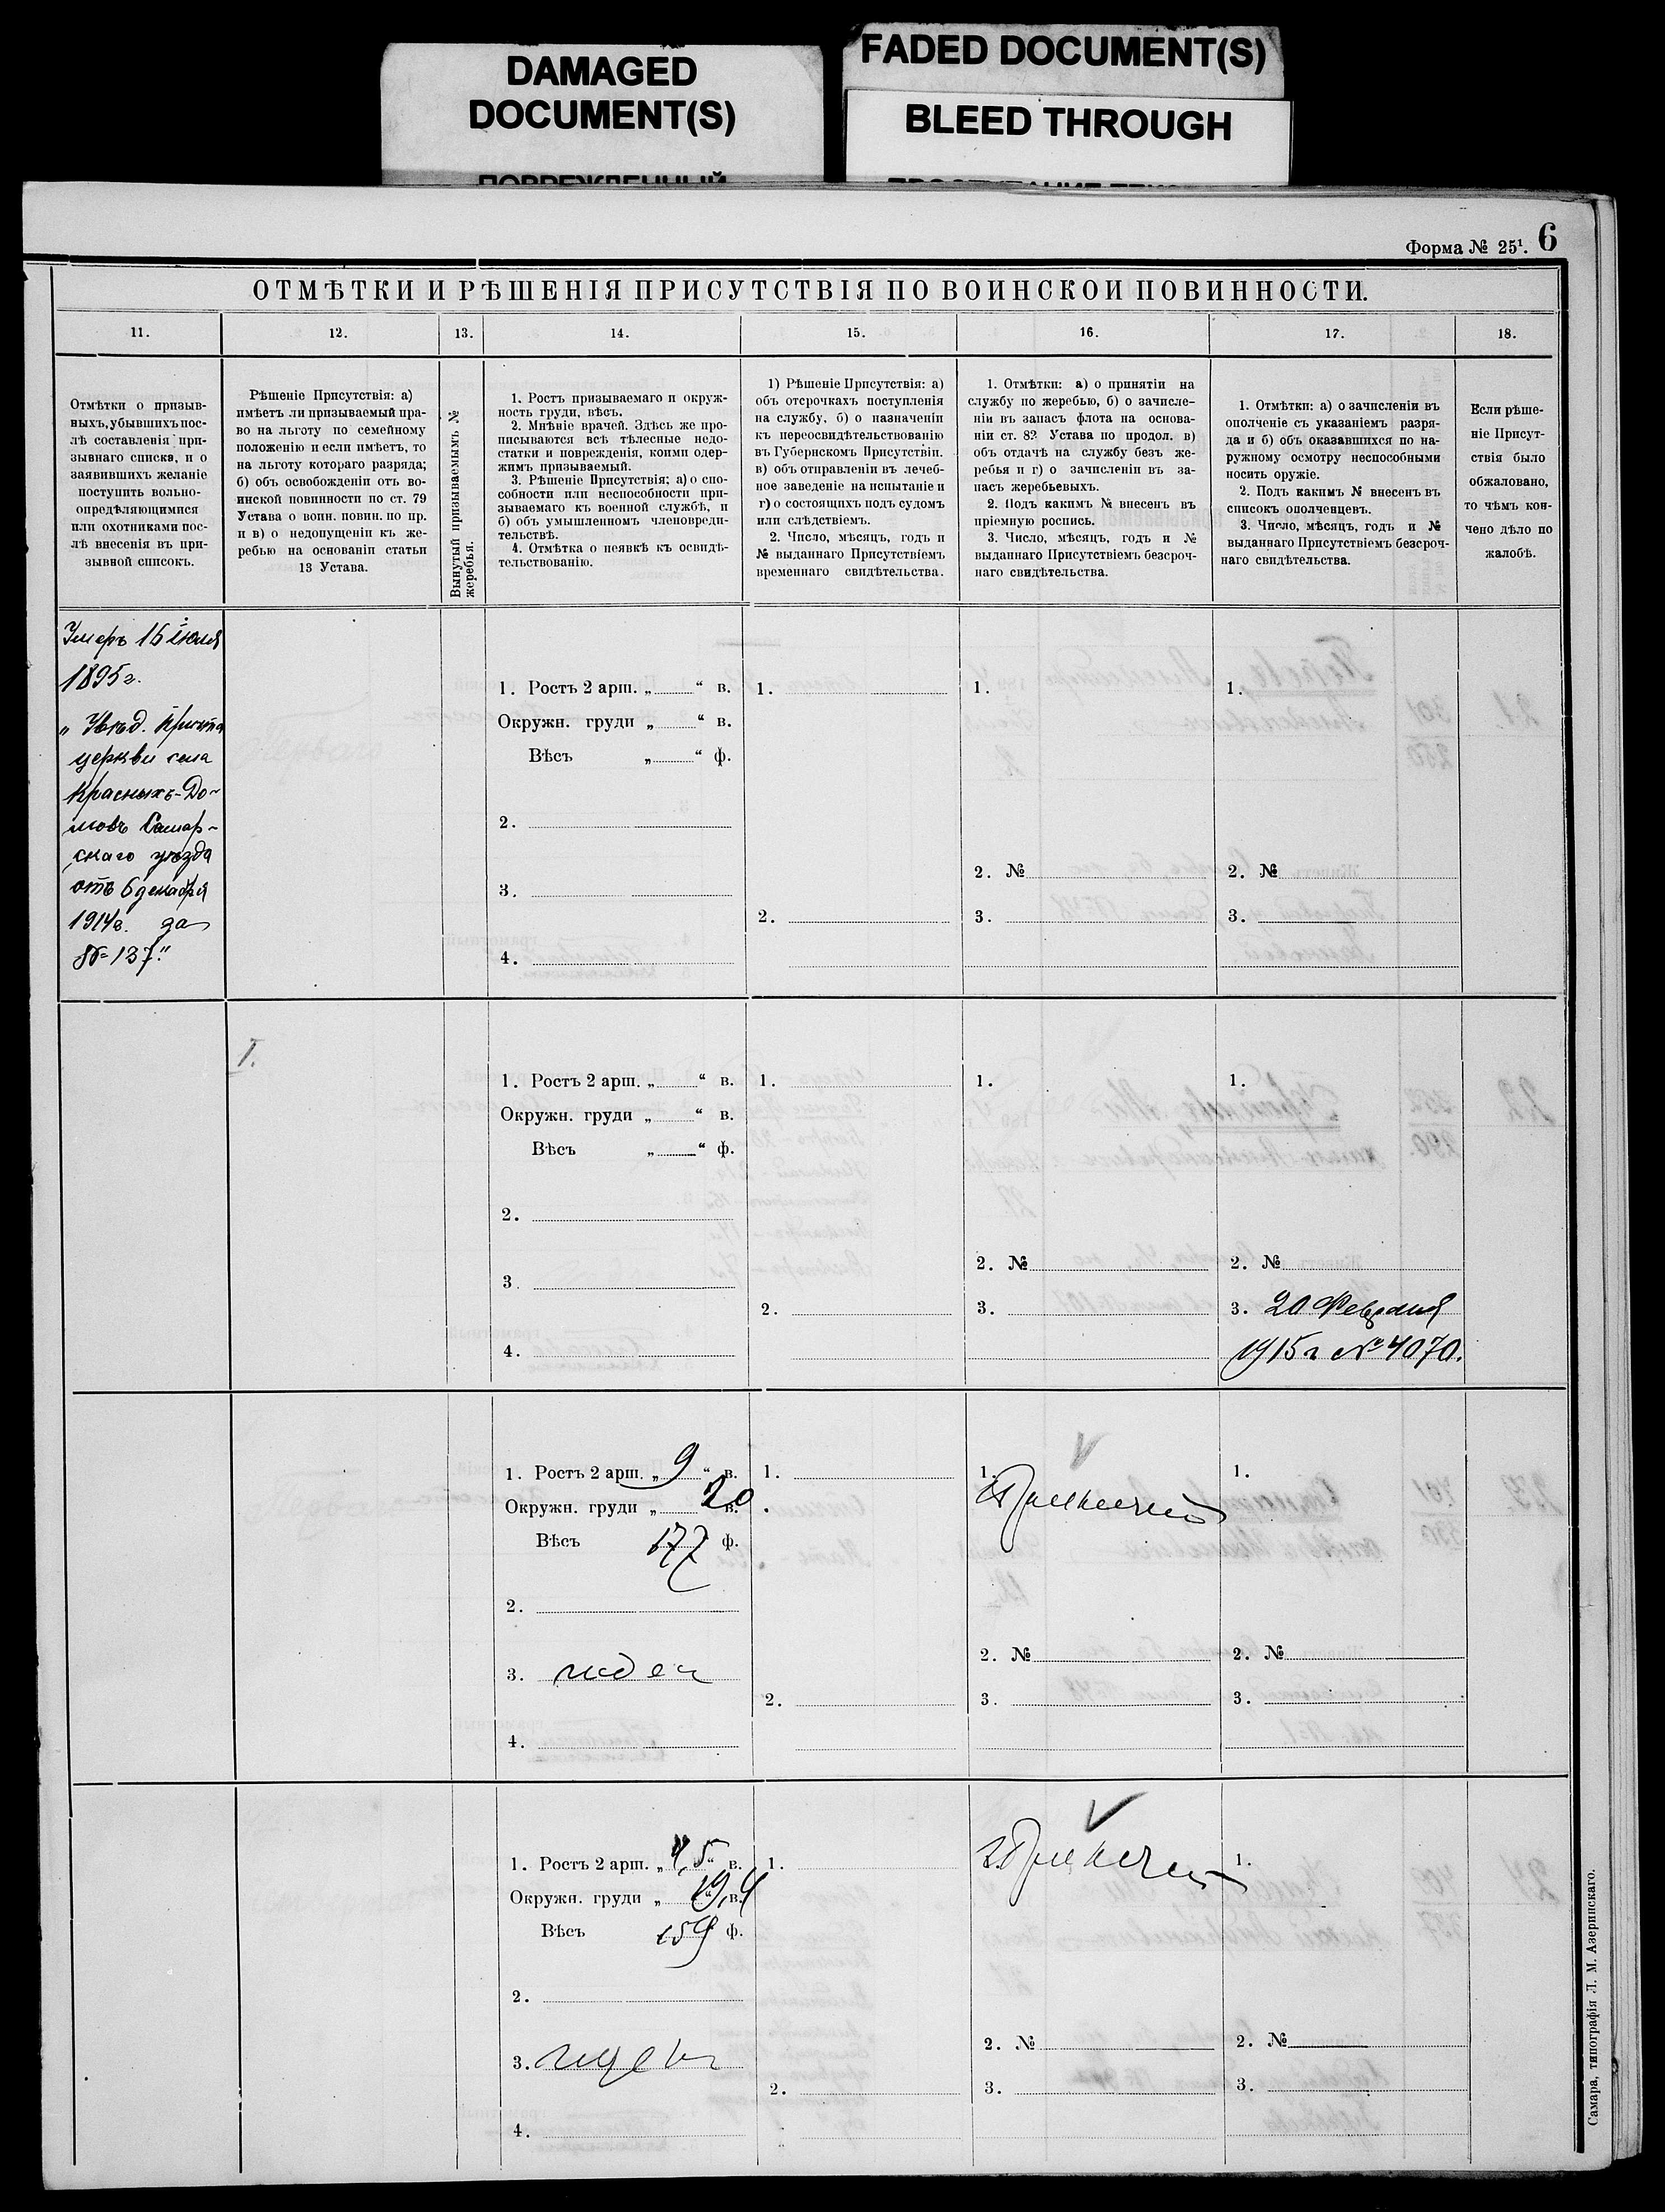 DAMAGED
DOCUMENT(S)
FADED DOCUMENT(S)
BLEED THROUGH
Форма № 25¹. 6
ОТМѢТКИ И РѢШЕНІЯ ПРИСУТСТВІЯ ПО ВОИНСКОИ ПОВИННОСТИ.
11.
12.
13.
14.
15.
16.
17.
18.
Отмѣтки о призыв-
ныхъ, убывшихъ пос-
лѣ составленія при-
зывнаго списка, и о
заявившихъ желаніе
поступить вольно-
опредѣляющимися
или охотниками пос-
лѣ внесенія въ при-
зывной списокъ.
Рѣшеніе Присутствія: а)
имѣетъ ли призываемый пра-
во на льготу по семейному
положенію и если имѣетъ, то
на льготу котораго разряда;
б) объ освобожденіи отъ во-
инской повинности по ст. 79
Устава о воин. повин. по пр.
и в) о недопущеніи къ же-
ребью на основаніи статьи
13 Устава.
Вынутый призываемымъ №
жеребья.
1. Ростъ призываемаго и окруж-
ность груди, вѣсъ.
2. Мнѣніе врачей. Здѣсь же про-
писываются всѣ тѣлесные недо-
статки и поврежденія, коими одер-
жимъ призываемый.
3. Рѣшеніе Присутствія; а) о спо-
собности или неспособности при-
зываемаго къ военной службѣ, и
б) объ умышленномъ членовреди-
тельствѣ.
4. Отмѣтка о неявкѣ къ освидѣ-
тельствованію.
1) Рѣшеніе Присутствія: а)
объ отсрочкахъ поступленія
на службу, б) о назначеніи
къ переосвидѣтельствованію
въ Губернскомъ Присутствіи.
в) объ отправленіи въ лечеб-
ное заведеніе на испытаніе и
г) о состоящихъ подъ судомъ
или слѣдствіемъ.
2. Число, мѣсяцъ, годъ и
№ выданнаго Присутствіемъ
временнаго свидѣтельства.
1. Отмѣтки: а) о принятіи на
службу по жеребью, б) о зачисле-
ніи въ запасъ флота на основа-
ніи ст. 82 Устава по продол. в)
объ отдачѣ на службу безъ же-
ребья и г) о зачисленіи въ за-
пасъ жеребьевыхъ.
2. Подъ какимъ № внесенъ въ
пріемную роспись.
3. Число, мѣсяцъ, годъ и №
выданнаго Присутствіемъ безсроч-
наго свидѣтельства.
1. Отмѣтки: а) о зачисленіи въ
ополченіе съ указаніемъ разря-
да и б) объ оказавшихся по на-
ружному осмотру неспособными
носить оружіе.
2. Подъ какимъ № внесенъ въ
списокъ ополченцевъ.
3. Число, мѣсяцъ, годъ и №
выданнаго Присутствіемъ безсроч-
наго свидѣтельства.
Если рѣше-
ніе Присут-
ствія было
обжаловано,
то чѣмъ кон-
чено дѣло по
жалобѣ.
Умеръ 15 іюля
1895 г.
„Увѣд. причта
церкви села
Красныхъ-До-
мовъ Самар-
скаго уѣзда
отъ 6 декабря
1914 г. за
№ 137."
1. Ростъ 2 арш. „ “ в.
Окружн. груди „ “ в.
Вѣсъ „ “ ф.
2.
3.
4.
1.
2.
1.
2. №
3.
1.
2. №
3.
I.
1. Ростъ 2 арш. „ “ в.
Окружн. груди „ “ в.
Вѣсъ „ “ ф.
2.
3
4.
1.
2.
1.
2. №
3.
1.
2. №
3. 20 Февраля
1915 г № 4070.
1. Ростъ 2 арш. „ 9 “ в.
Окружн. груди „ 20 в.
Вѣсъ 177 ф.
2.
3. годен
4.
1.
2.
1.
2. №
3.
1.
2. №
3.
1. Ростъ 2 арш. „ 4,5 “ в.
Окружн. груди „ 19,4 в.
Вѣсъ 159 ф.
2.
3. годен
4.
1.
2.
2. №
3.
1.
2. №
3.
Самара, типографія Л. М. Азеринскаго.